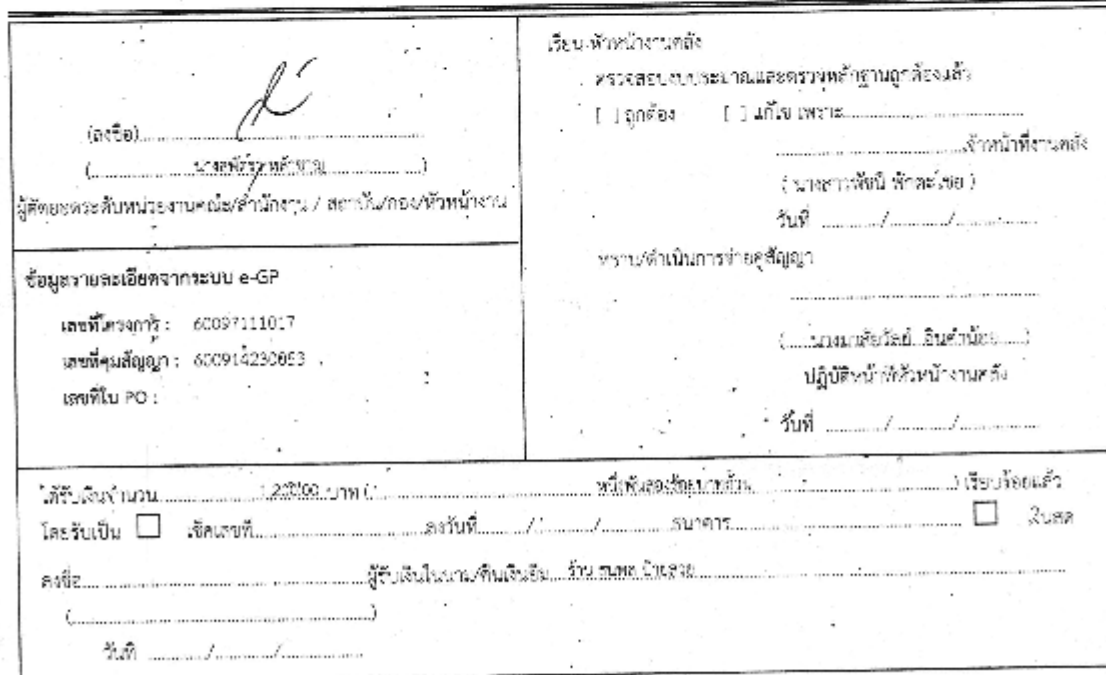 (ลงชื่อ)
(..........)
ผู้ตัดยอดระดับหน่วยงานคณะ/สำนักงาน / สถาบัน/กอง/หัวหน้างาน
ข้อมูลรายละเอียดจากระบบ e-GP
เลขที่โครงการ : 60097111017
เลขที่คุมสัญญา : 600914230053
เลขที่ใบ PO :
เรียน หัวหน้างานคลัง
ตรวจสอบงบประมาณและตรวจหลักฐานถูกต้องแล้ว
[ ] ถูกต้อง [ ] แก้ไข เพราะ
เจ้าหน้าที่งานคลัง
( นางสาวพัชนี )
วันที่ ........../........../..........
ทราบ/ดำเนินการจ่ายคู่สัญญา
(.....นางมาลัยวัลย์ อินคำน้อย.....)
ปฏิบัติหน้าที่หัวหน้างานคลัง
วันที่ ........../........../..........
ได้รับเงินจำนวน 1,200.00 บาท ( หนึ่งพันสองร้อยบาทถ้วน ) เรียบร้อยแล้ว
โดยรับเป็น ☐ เช็คเลขที่ ลงวันที่ ......../......../........ ธนาคาร ☐ เงินสด
ลงชื่อ ผู้รับเงินในนาม/คืนเงินยืม ร้าน ธนพล ป้ายสวย
(..........)
วันที่ ........../........../..........